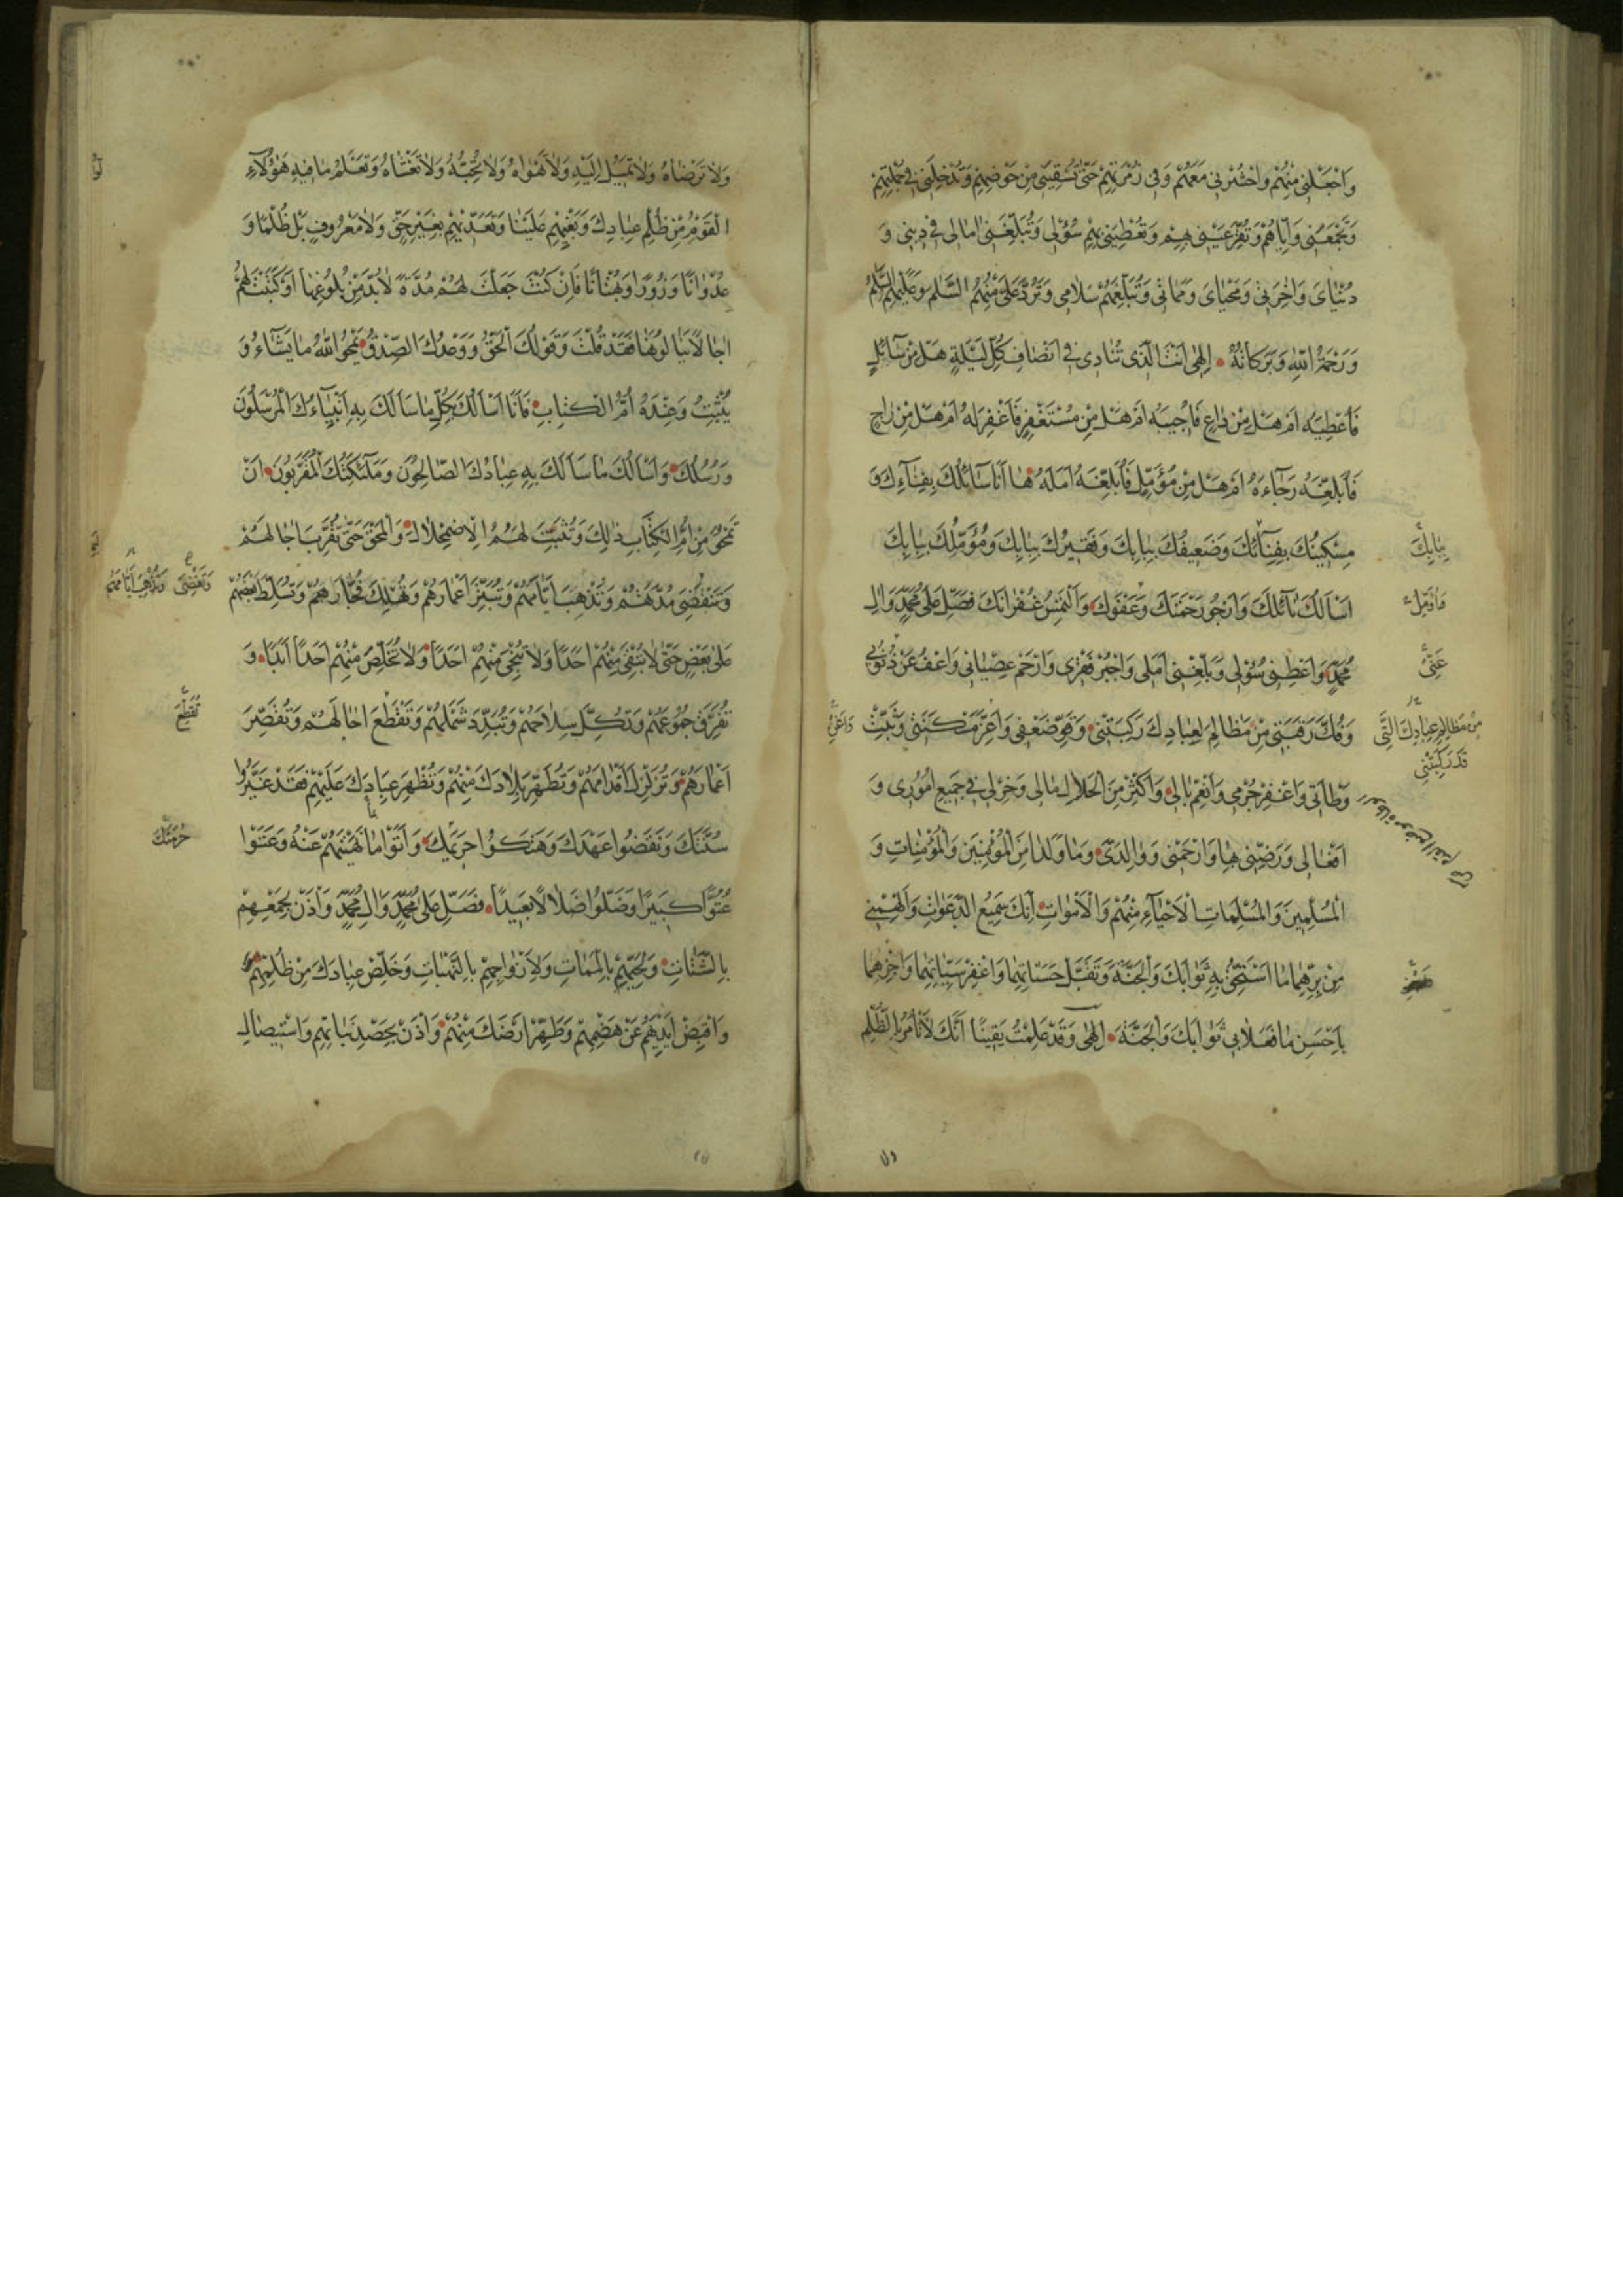 وَاجْعَلْنِي مِنْهُمْ وَاحْشُرْنِي مَعَهُمْ وَفِي زُمْرَتِهِمْ حَتّٰى تُسْقِيَنِي مِنْ حَوْضِهِمْ وَتُدْخِلَنِي فِي جُمْلَتِهِمْ
وَتَجْمَعَنِي وَاِيَّاهُمْ وَتُقِرَّ عَيْنِي بِهِمْ وَتُعْطِيَنِي بِهِمْ سُؤْلِي وَتُبَلِّغَنِي اٰمَالِي فِي دِينِي وَ
دُنْيَايَ وَاٰخِرَتِي وَمَحْيَايَ وَمَمَاتِي وَتُبَلِّغَهُمْ سَلَامِي وَتَرُدَّ عَلَيَّ مِنْهُمُ السَّلٰمَ وَعَلَيْهِمُ السَّلٰمُ
وَرَحْمَةُ اللّٰهِ وَبَرَكَاتُهُ اِلٰهِي اَنْتَ الَّذِي تُنَادِي فِي اَنْصَافِ كُلِّ لَيْلَةٍ هَلْ مِنْ سَائِلٍ
فَاُعْطِيَهُ اَمْ هَلْ مِنْ دَاعٍ فَاُجِيبَهُ اَمْ هَلْ مِنْ مُسْتَغْفِرٍ فَاَغْفِرَ لَهُ اَمْ هَلْ مِنْ رَاجٍ
فَاُبَلِّغَهُ رَجَاءَهُ اَمْ هَلْ مِنْ مُؤَمِّلٍ فَاُبَلِّغَهُ اَمَلَهُ هَا اَنَا سَائِلُكَ بِفِنَاءِكَ وَ
مِسْكِينُكَ بِفِنَائِكَ وَضَعِيفُكَ بِبَابِكَ وَفَقِيرُكَ بِبَابِكَ وَمُؤَمِّلُكَ بِبَابِكَ
بِبَابِكَ
اَسْاَلُكَ نَائِلَكَ وَاَرْجُو رَحْمَتَكَ وَعَفْوَكَ وَاَلْتَمِسُ غُفْرَانَكَ فَصَلِّ عَلٰى مُحَمَّدٍ وَاٰلِ
مُحَمَّدٍ وَاَعْطِنِي سُؤْلِي وَبَلِّغْنِي اَمَلِي وَاجْبُرْ فَقْرِي وَارْحَمْ عِصْيَانِي وَاعْفُ عَنْ ذُنُوبِي
وَفُكَّ رَقَبَتِي مِنْ مَظَالِمَ لِعِبَادِكَ رَكِبَتْنِي وَقَوِّ ضَعْفِي وَاَعِزَّ مَسْكَنَتِي وَثَبِّتْ
مِنْ مَظَالِمِ عِبَادِكَ الَّتِي
قَدْ رَكِبَتْنِي
وَطْاَتِي وَاغْفِرْ جُرْمِي وَاَنْعِمْ بَالِي وَاَكْثِرْ مِنَ الْحَلَالِ مَالِي وَخِرْ لِي فِي جَمِيعِ اُمُورِي وَ
اَفْعَالِي وَرَضِّنِي بِهَا وَارْحَمْنِي وَوَالِدَيَّ وَمَا وَلَدَا مِنَ الْمُؤْمِنِينَ وَالْمُؤْمِنَاتِ وَ
الْمُسْلِمِينَ وَالْمُسْلِمَاتِ الْاَحْيَاءِ مِنْهُمْ وَالْاَمْوَاتِ اِنَّكَ سَمِيعُ الدَّعَوَاتِ وَاَلْهِمْنِي
مِنْ بِرِّهِمَا مَا اَسْتَحِقُّ بِهِ ثَوَابَكَ وَالْجَنَّةَ وَتَقَبَّلْ حَسَنَاتِهِمَا وَاغْفِرْ سَيِّئَاتِهِمَا وَاجْزِهِمَا
بِاَحْسَنِ مَا فَعَلَا بِي ثَوَابَكَ وَالْجَنَّةَ اِلٰهِي وَقَدْ عَلِمْتُ يَقِينًا اَنَّكَ لَا تَاْمُرُ بِالظُّلْمِ
وَلَا تَرْضَاهُ وَلَا تَمِيلُ اِلَيْهِ وَلَا تَهْوَاهُ وَلَا تُحِبُّهُ وَلَا تَغْشَاهُ وَتَعْلَمُ مَا فِيهِ هٰؤُلَاءِ
الْقَوْمُ مِنْ ظُلْمِ عِبَادِكَ وَبَغْيِهِمْ عَلَيْنَا وَتَعَدِّيهِمْ بِغَيْرِ حَقٍّ وَلَا مَعْرُوفٍ بَلْ ظُلْمًا وَ
عُدْوَانًا وَزُورًا وَبُهْتَانًا فَاِنْ كُنْتَ جَعَلْتَ لَهُمْ مُدَّةً لَا بُدَّ مِنْ بُلُوغِهَا اَوْ كَتَبْتَ لَهُمْ
اٰجَالًا يَنَالُونَهَا فَقَدْ قُلْتَ وَقَوْلُكَ الْحَقُّ وَوَعْدُكَ الصِّدْقُ يَمْحُو اللّٰهُ مَا يَشَاءُ وَ
يُثْبِتُ وَعِنْدَهُ اُمُّ الْكِتَابِ فَاَنَا اَسْاَلُكَ بِكُلِّ مَا سَاَلَكَ بِهِ اَنْبِيَاءُكَ الْمُرْسَلُونَ
وَرُسُلُكَ وَاَسْاَلُكَ مَا سَاَلَكَ بِهِ عِبَادُكَ الصَّالِحُونَ وَمَلٰئِكَتُكَ الْمُقَرَّبُونَ اَنْ
تَمْحُوَ مِنْ اُمِّ الْكِتَابِ ذٰلِكَ وَتُثْبِتَ لَهُمُ الْاِضْمِحْلَالَ وَالْمَحْقَ حَتّٰى تُقَرِّبَ اٰجَالَهُمْ
وَتَنْقَضِيَ مُدَّتُهُمْ وَتُذْهِبَ اَيَّامَهُمْ وَتُبَتِّرَ اَعْمَارَهُمْ وَتُهْلِكَ فُجَّارَهُمْ وَتُسَلِّطَ بَعْضَهُمْ
وَتَقْضِيَ وَتُذْهِبَ اَيَّامَهُمْ
عَلٰى بَعْضٍ حَتّٰى لَا تُبْقِيَ مِنْهُمْ اَحَدًا وَلَا تُنْجِيَ مِنْهُمْ اَحَدًا وَلَا تُخَلِّصَ مِنْهُمْ اَحَدًا اَبَدًا وَ
تُفَرِّقَ جُمُوعَهُمْ وَتُكِلَّ سِلَاحَهُمْ وَتُبَدِّدَ شَمْلَهُمْ وَتَقْطَعَ اٰجَالَهُمْ وَتُقَصِّرَ
تُقَطِّعَ
اَعْمَارَهُمْ وَتُزَلْزِلَ اَقْدَامَهُمْ وَتُطَهِّرَ بِلَادَكَ مِنْهُمْ وَتُظْهِرَ عِبَادَكَ عَلَيْهِمْ فَقَدْ غَيَّرُوا
سُنَّتَكَ وَنَقَضُوا عَهْدَكَ وَهَتَكُوا حَرِيمَكَ وَاَتَوْا مَا نَهَيْتَهُمْ عَنْهُ وَعَتَوْا
حُرْمَتَكَ
عُتُوًّا كَبِيرًا وَضَلُّوا ضَلَالًا بَعِيدًا فَصَلِّ عَلٰى مُحَمَّدٍ وَاٰلِ مُحَمَّدٍ وَاْذَنْ لِجَمْعِهِمْ
بِالشَّتَاتِ وَلِحَيِّهِمْ بِالْمَمَاتِ وَلِاَزْوَاجِهِمْ بِالنَّهَبَاتِ وَخَلِّصْ عِبَادَكَ مِنْ ظُلْمِهِمْ
وَاقْبِضْ اَيْدِيَهُمْ عَنْ هَضْمِهِمْ وَطَهِّرْ اَرْضَكَ مِنْهُمْ وَاْذَنْ بِحَصْدِ نَبَاتِهِمْ وَاسْتِيصَالِ